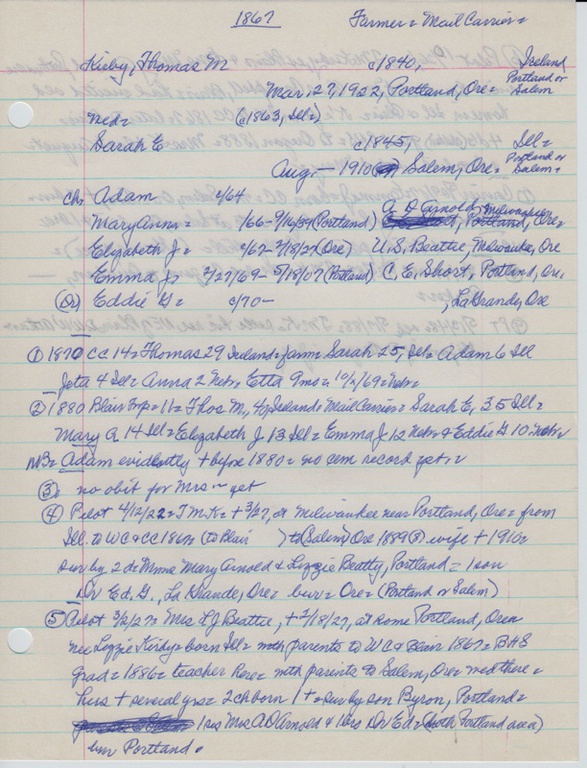 1867 Farmer = Mail Carrier =
Kirby, Thomas M c/1840, Ireland
Mar. 27, 1922, Portland, Ore = Portland or Salem
med = (c1863, Ill =)
Sarah E c/1845, Ill =
Aug. — 1910 Salem, Ore = Portland or Salem =
ch: Adam c/64
Mary Ann = /66 - 9/16/34 (Portland) A. D Arnold, Milwaukee, Ore
Elizabeth J = c/67 - 2/18/27 (Ore) U. S. Beattie, Milwaukee, Ore
Emma J = 2/27/69 - 5/18/07 (Portland) C. E. Short, Portland, Ore,
(Dr) Eddie G = c/70 — , LaGrande, Ore
① 1870 CC 14 = Thomas 29 Ireland = farm = Sarah 25, Ill = Adam 6 Ill
4 Ill = Anna 2 Nebr = Etta 9 mos = 10/2/69 = Nebr =
② 1880 Blair Twp = 11 = Thos M, 40 Ireland = Mail Carrier = Sarah E, 35 Ill =
Mary A 14 Ill = Elizabeth J 13 Ill = Emma J 12 Nebr & Eddie G 10 = Nebr =
NB = Adam evidently + before 1880 = no cem record yet =
③ no obit for Mrs — yet
④ Pilot 4/12/22 = T M K = + 3/27, at Milwaukee near Portland, Ore = from
Ill. to WC & CC 1867 (to Blair ) to (Salem) Ore 1889(?) wife + 1910 =
sur by 2 da Mmes Mary Arnold & Lizzie Beatty, Portland = 1 son
Dr Ed. G., La Grande, Ore = bur = Ore = (Portland or Salem)
⑤ Pilot 3/2/27 = Mrs L J Beattie, + 2/18/27, at home Portland, Oren
nee Lizzie Kirby = born Ill = with parents to WC & Blair 1867 = BHS
grad = 1886 = teacher here = with parents to Salem, Ore = med there =
hus + several yrs = 2 ch born 1 + = sur by son Byron, Portland =
1 sis Mrs A D Arnold & 1 bro Dr Ed = (both Portland area)
bur Portland.